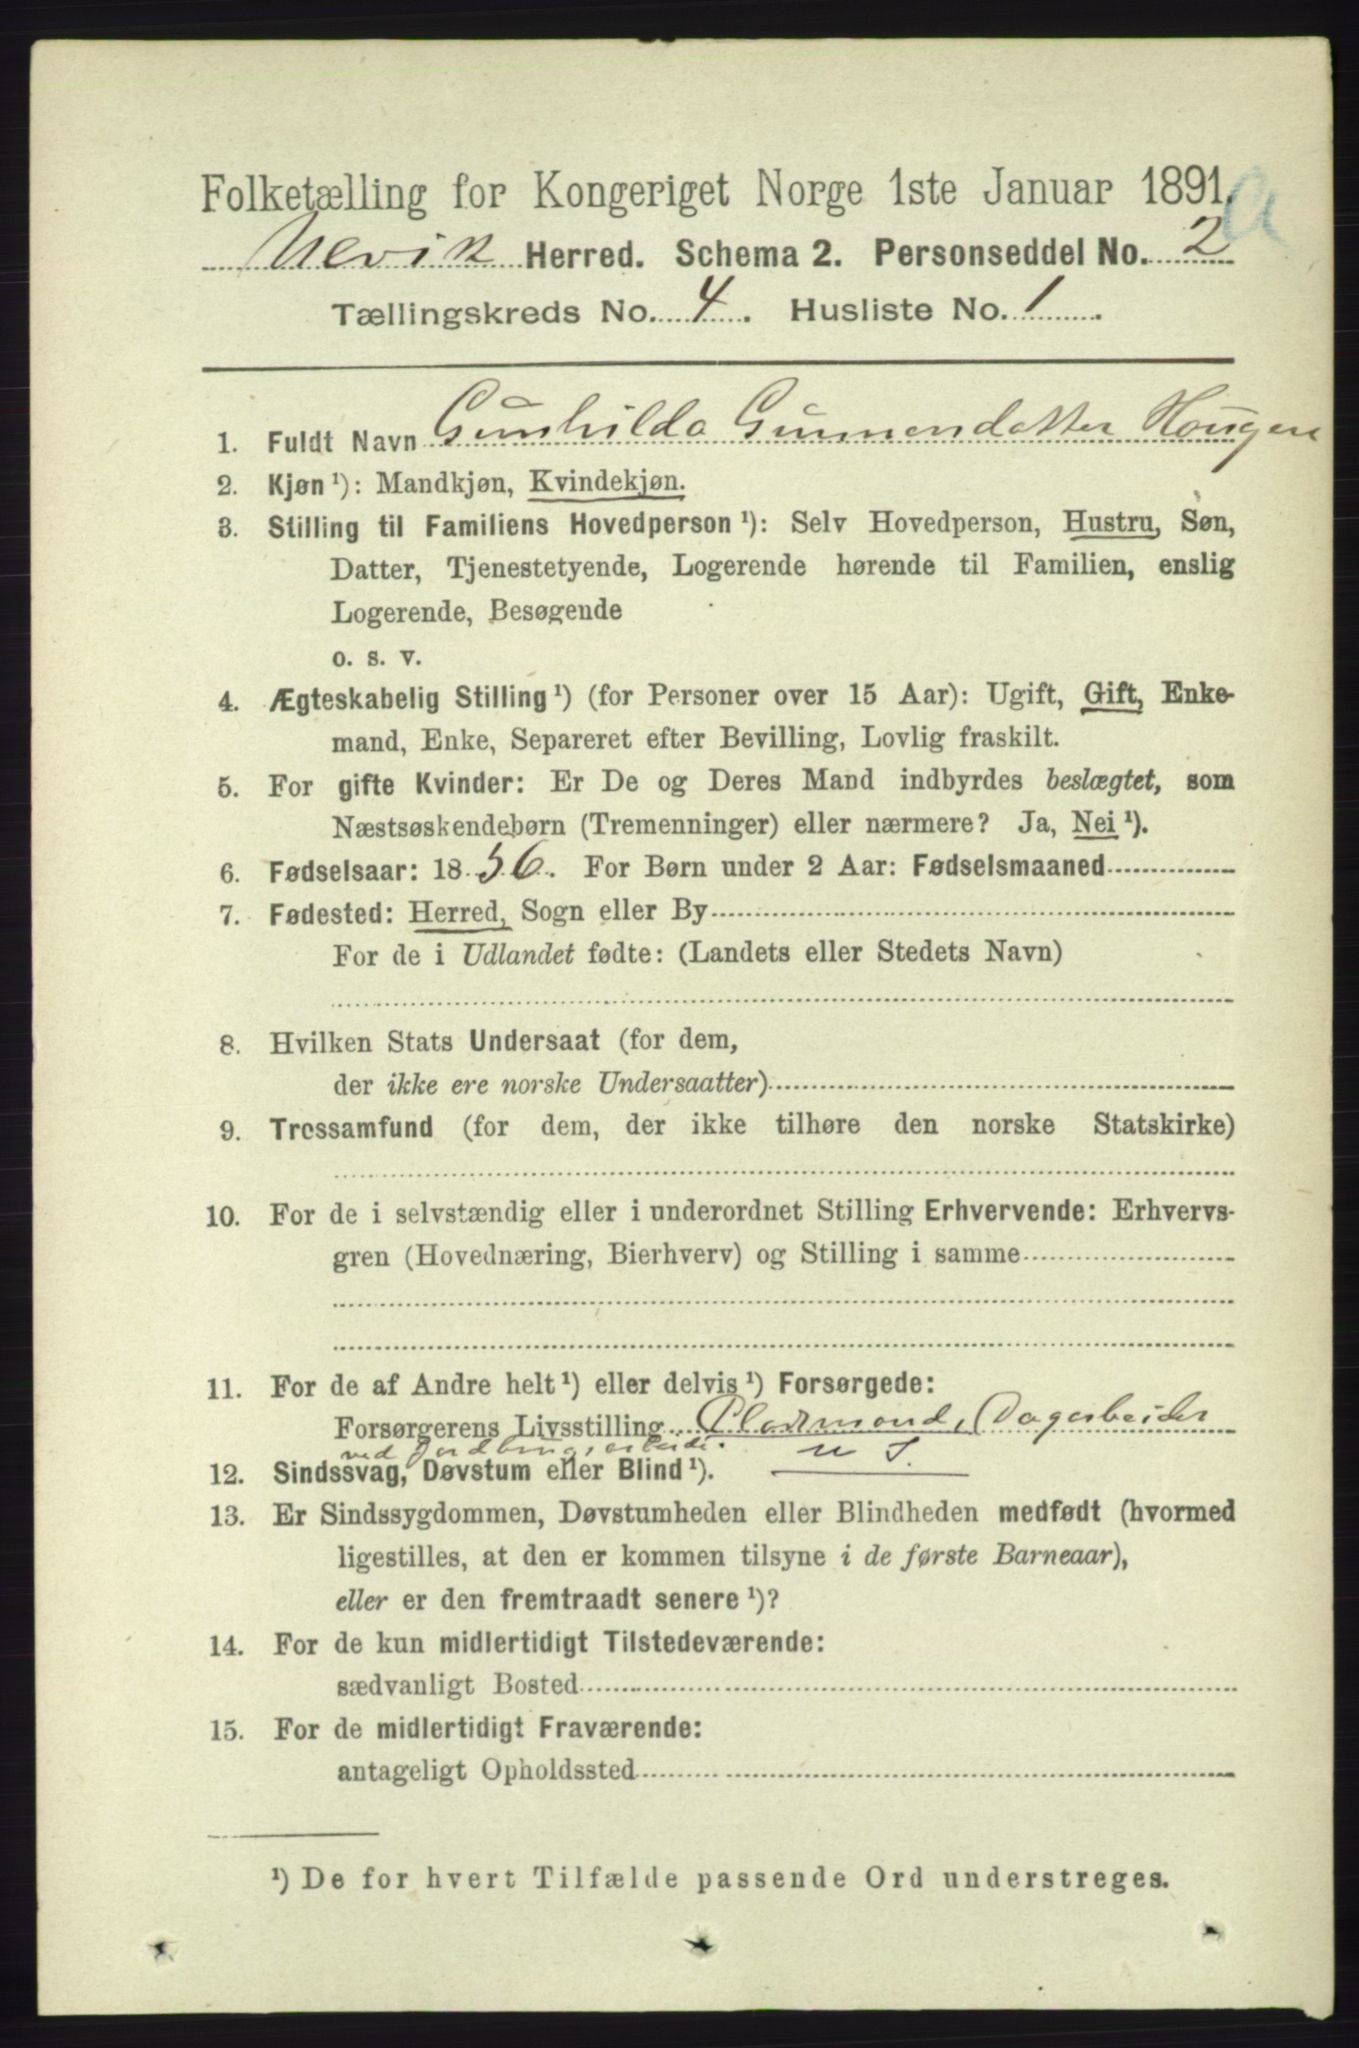 Folketælling for Kongeriget Norge 1ste Januar 1891.
Ulvik Herred. Schema 2. Personseddel No. 2
Tællingskreds No. 4. Husliste No. 1.
1. Fuldt Navn Gunhilda Gunnendatter Hougen
2. Kjøn ¹): Mandkjøn, Kvindekjøn.
3. Stilling til Familiens Hovedperson ¹): Selv Hovedperson, Hustru, Søn,
Datter, Tjenestetyende, Logerende hørende til Familien, enslig
Logerende, Besøgende
o. s. v.
4. Ægteskabelig Stilling ¹) (for Personer over 15 Aar): Ugift, Gift, Enke-
mand, Enke, Separeret efter Bevilling, Lovlig fraskilt.
5. For gifte Kvinder: Er De og Deres Mand indbyrdes beslægtet, som
Næstsøskendebørn (Tremenninger) eller nærmere? Ja, Nei ¹).
6. Fødselsaar: 1856. For Børn under 2 Aar: Fødselsmaaned
7. Fødested: Herred, Sogn eller By
For de i Udlandet fødte: (Landets eller Stedets Navn)
8. Hvilken Stats Undersaat (for dem,
der ikke ere norske Undersaatter)
9. Trossamfund (for dem, der ikke tilhøre den norske Statskirke)
10. For de i selvstændig eller i underordnet Stilling Erhvervende: Erhvervs-
gren (Hovednæring, Bierhverv) og Stilling i samme
11. For de af Andre helt ¹) eller delvis ¹) Forsørgede:
Forsørgerens Livsstilling Pladsmand, Dagarbeider
ved Jordbrugsarbeide.
12. Sindssvag, Døvstum eller Blind ¹).
13. Er Sindssygdommen, Døvstumheden eller Blindheden medfødt (hvormed
ligestilles, at den er kommen tilsyne i de første Barneaar),
eller er den fremtraadt senere ¹)?
14. For de kun midlertidigt Tilstedeværende:
sædvanligt Bosted
15. For de midlertidigt Fraværende:
antageligt Opholdssted
¹) De for hvert Tilfælde passende Ord understreges.